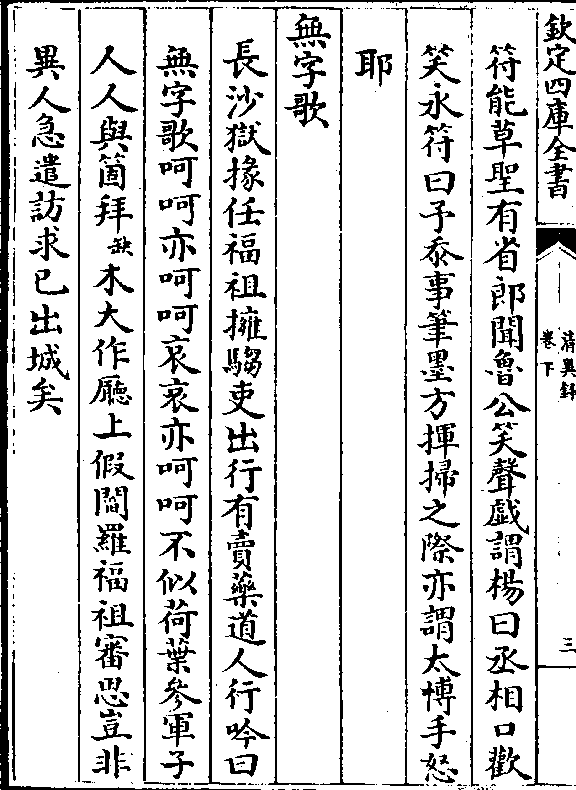 欽定四庫全書
清異録
卷下
三
符能草聖有省郎聞魯公笑聲戯謂楊曰丞相口歡
笑永符曰予忝事筆墨方揮掃之際亦謂太博手怒
耶
無字歌
長沙獄掾任福祖擁騶吏出行有賣藥道人行吟曰
無字歌呵呵亦呵呵哀哀亦呵呵不似荷葉參軍子
人人與箇拜缺木大作廳上假閻羅福祖審思豈非
異人急遣訪求已出城矣